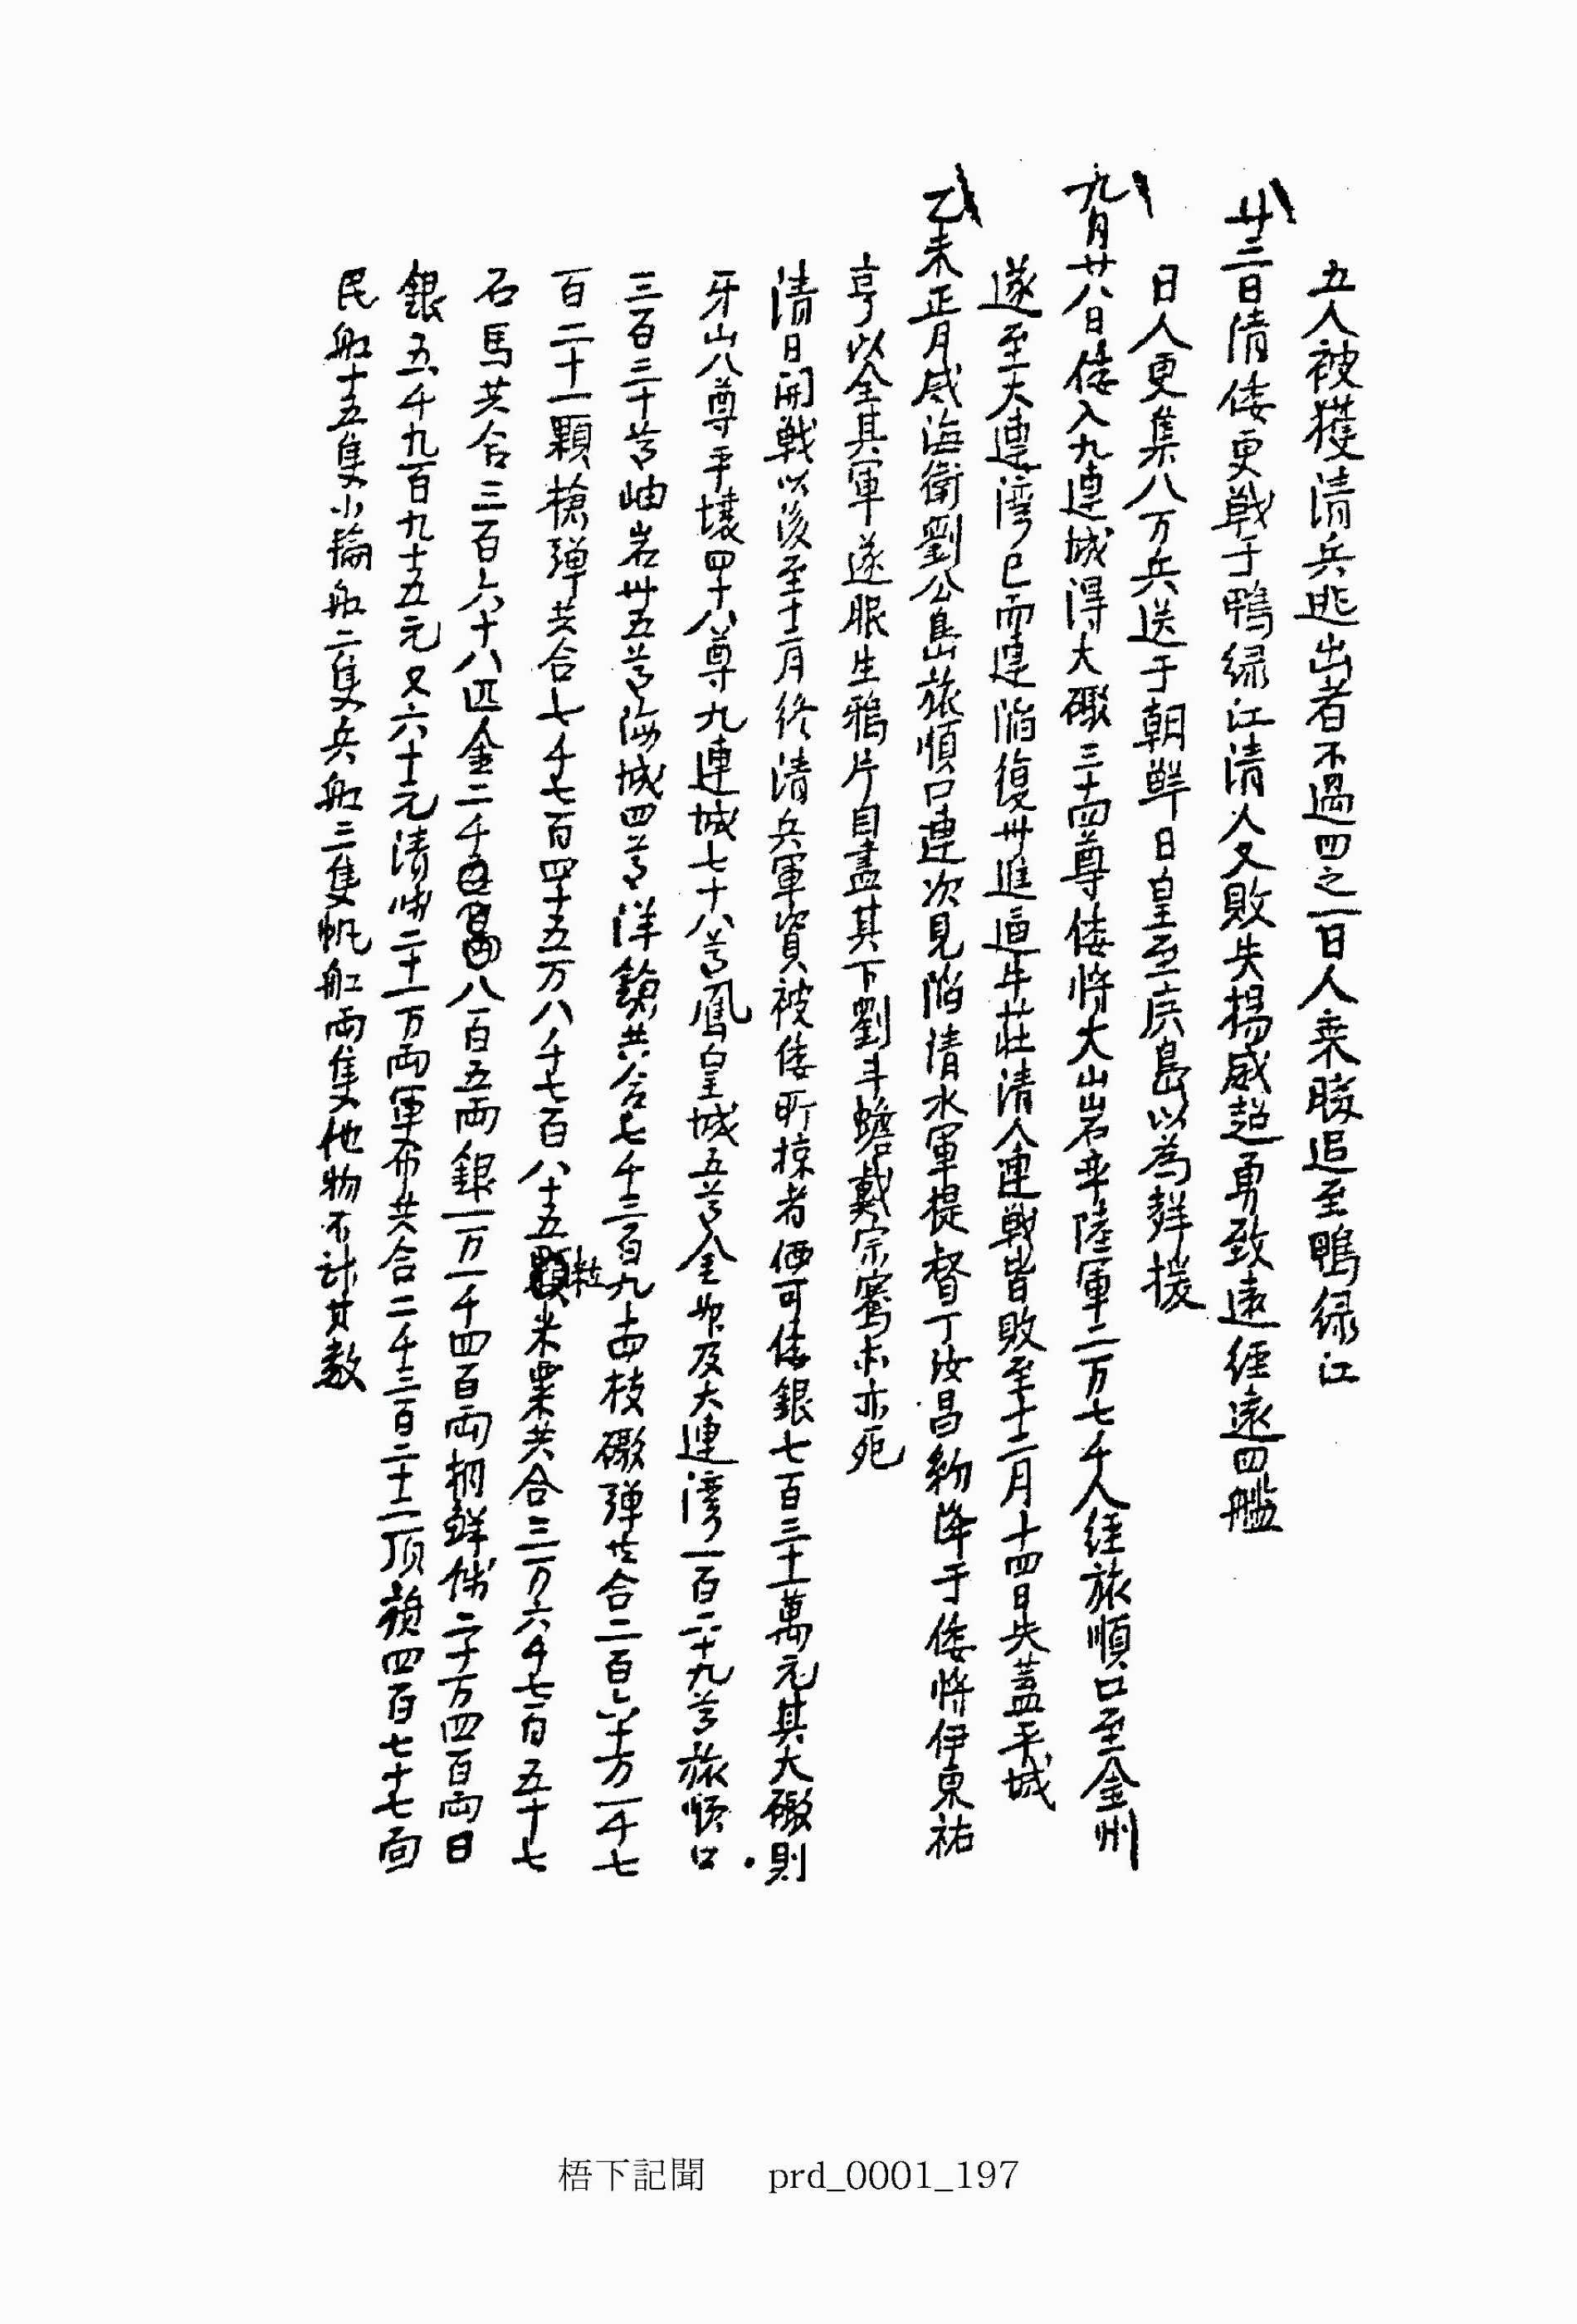 五人被獲清兵逃出者不過四之一日人乗勝追至鴨緑江
廿三日清倭更戦于鴨緑江清人又敗失揚威超勇致遠經遠四艦
日人更集八万兵送于朝鮮日皇至広島以為聲援
九月廿八日倭入九連城得大礮三十四尊倭将大山岩率陸軍二万七千人経旅順口至金州
遂至大連湾已而連陥復州進逼牛荘清人連戦皆敗至十二月十四日失蓋平城
乙未正月威海衛劉公島旅順口連次見陥清水軍提督丁汝昌約降于倭将伊東祐
亨以全其軍遂服生鴉片自盡其下劉斗蟾戴宗騫亦死
清日開戦以後至十二月終清兵軍資被倭所掠者価可倭銀七百三十万元其大礮則
牙山八尊平壌四十八尊九連城七十八尊鳳皇城五尊金州及大連湾一百二十九尊旅順口
三百三十尊岫岩卅五尊海城四尊洋鎗共合七千三百九十四枝礮弾共合二百六十万一千七
百二十一顆槍弾共合七千七百四十五万八千七百八十五粒米粟共合三万六千七百五十七
石馬共合三百六十八匹金二千八百五両銀一万一千四百両朝鮮銭二千万四百両日
銀五千九百九十五元又六十元清銭二十一万両軍布共合二千三百二十二頂旗四百七十七面
民舩十五隻小輪舩二隻兵舩三隻帆舩両隻他物不計其数
梧下記聞 prd_0001_197